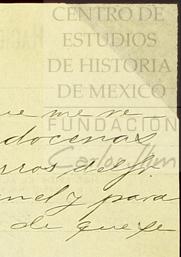 CENTRO DE
ESTUDIOS
DE HISTORIA
DE MÉXICO
FUNDACIÓN
Carlos Slim
ue me re
docenas
rros del
nel y para
de que se